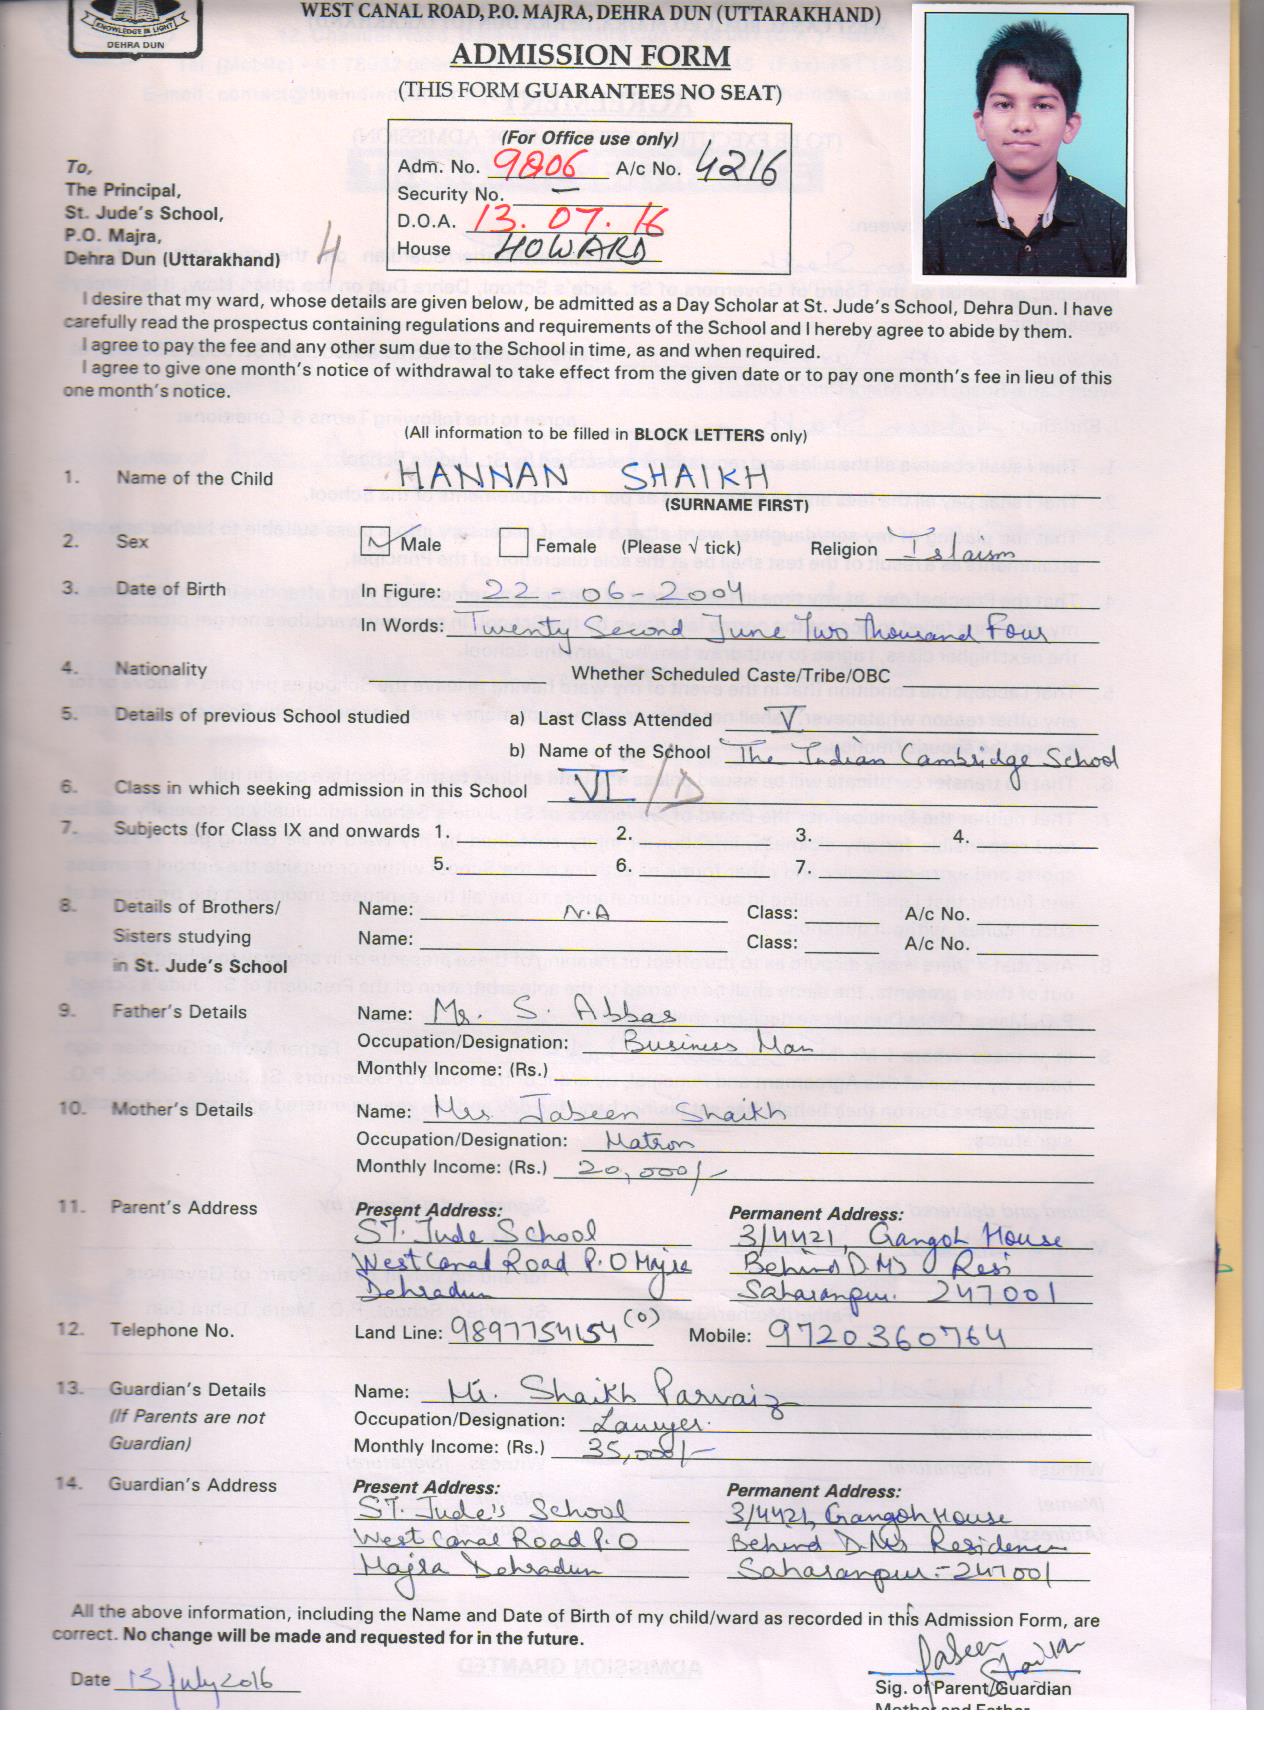 KNOWLEDGE IS LIGHT
DEHRA DUN
WEST CANAL ROAD, P.O. MAJRA, DEHRA DUN (UTTARAKHAND)
ADMISSION FORM
(THIS FORM GUARANTEES NO SEAT)
(For Office use only)
Adm. No. 9806 A/c No. 4216
Security No. —
D.O.A. 13.07.16
House HOWARD
To,
The Principal,
St. Jude's School,
P.O. Majra,
Dehra Dun (Uttarakhand)
I desire that my ward, whose details are given below, be admitted as a Day Scholar at St. Jude's School, Dehra Dun. I have
carefully read the prospectus containing regulations and requirements of the School and I hereby agree to abide by them.
I agree to pay the fee and any other sum due to the School in time, as and when required.
I agree to give one month's notice of withdrawal to take effect from the given date or to pay one month's fee in lieu of this
one month's notice.
(All information to be filled in BLOCK LETTERS only)
1. Name of the Child HANNAN SHAIKH
(SURNAME FIRST)
2. Sex Male Female (Please √ tick) Religion Islaum
3. Date of Birth In Figure: 22-06-2004
In Words: Twenty Second June Two Thousand Four
4. Nationality Whether Scheduled Caste/Tribe/OBC
5. Details of previous School studied a) Last Class Attended V
b) Name of the School The Indian Cambridge School
6. Class in which seeking admission in this School VI /D
7. Subjects (for Class IX and onwards 1. 2. 3. 4.
5. 6. 7.
8. Details of Brothers/ Name: N.A Class: A/c No.
Sisters studying Name: Class: A/c No.
in St. Jude's School
9. Father's Details Name: Mr. S. Abbas
Occupation/Designation: Business Man
Monthly Income: (Rs.)
10. Mother's Details Name: Mrs. Jabeen Shaikh
Occupation/Designation: Matron
Monthly Income: (Rs.) 20,000/-
11. Parent's Address Present Address: Permanent Address:
ST. Jude School 3/4421, Gangoh House
West Canal Road P.O Majra Behind D.M's Resi
Dehradun Saharanpur. 247001
12. Telephone No. Land Line: 9897754154 (O) Mobile: 9720360764
13. Guardian's Details Name: Mr. Shaikh Parvaiz
(If Parents are not Occupation/Designation: Lawyer.
Guardian) Monthly Income: (Rs.) 35,000/-
14. Guardian's Address Present Address: Permanent Address:
ST. Jude's School 3/4421, Gangoh House
West Canal Road P.O Behind D.M's Residence
Majra Dehradun Saharanpur:-247001
All the above information, including the Name and Date of Birth of my child/ward as recorded in this Admission Form, are
correct. No change will be made and requested for in the future.
Jabeen Shaikh
Date 13/July 2016
Sig. of Parent/Guardian
Mother and Father